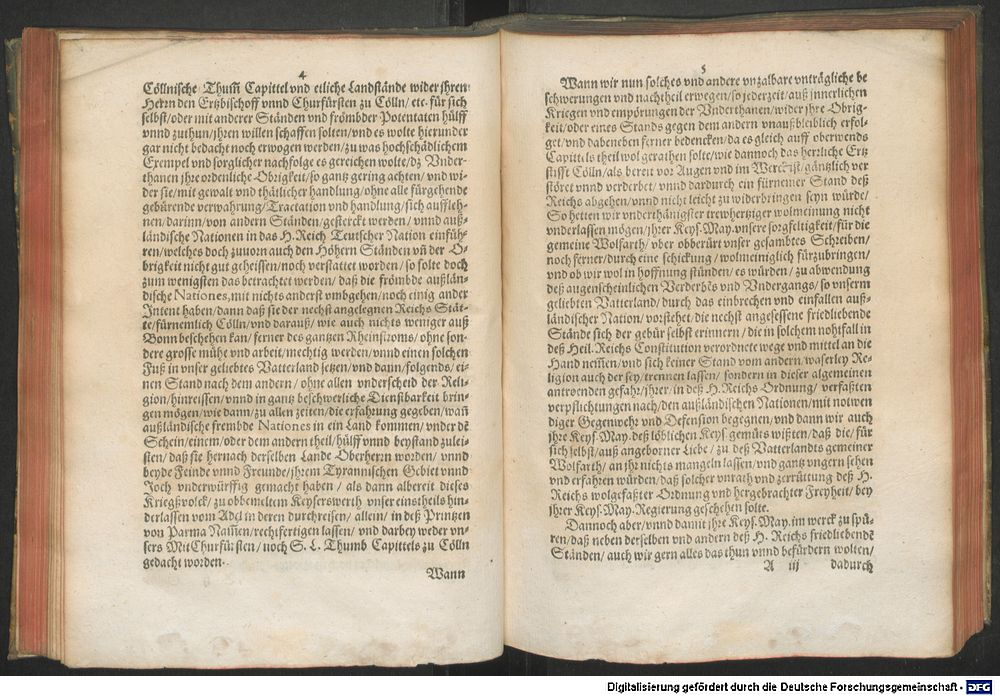 4
Cöllnische Thum̃ Capittel vnd etliche Landstände wider jhren
Herrn den Ertzbischoff vnnd Churfürsten zu Cölln/ etc. für sich
selbst/oder mit anderer Ständen vnd frömbder Potentaten hülff
vnnd zuthun/jhren willen schaffen solten/vnd es wolte hierunder
gar nicht bedacht noch erwogen werden/zu was hochschädlichem
Exempel vnd sorglicher nachfolge es gereichen wolte/dz Vnder-
thanen jhre ordenliche Obrigkeit/so gantz gering achten/ vnd wi-
der sie/mit gewalt vnd thätlicher handlung/ohne alle fürgehende
gebürende verwahrung/Tractation vnd handlung/sich aufflleh-
nen/darinn/von andern Ständen/gesterckt werden/ vnnd auß-
ländische Nationen in das H. Reich Teutscher Nation einfüh-
ren/welches doch zuuorn auch den Höhern Ständen vñ der O-
brigkeit nicht gut geheissen/noch verstattet worden/ so solte doch
zum wenigsten das betrachtet werden/ daß die frömbde außlän-
dische Nationes, mit nichts anderst vmbgehen/noch einig ander
Intent haben/dann daß sie der nechst angelegnen Reichs Stät-
te/fürnemlich Cölln/vnd darauß/ wie auch nichts weniger auß
Bonn beschehen kan/ ferner des gantzen Rheinstroms/ ohne son-
dere grosse mühe vnd arbeit/mechtig werden/vnnd einen solchen
Fuß in vnser geliebtes Vatterland setzen/vnd dann/folgends/ei-
nen Stand nach dem andern / ohne allen vnderscheid der Reli-
gion/hinreissen/ vnnd in gantz beschwerliche Dienstbarkeit brin-
gen mögen/wie dann/zu allen zeiten/die erfahrung gegeben/wañ
außländische frembde Nationes in ein Land kommen/ vnder dẽ
Schein/einem/oder dem andern theil/hülff vnnd beystand zulei-
sten/ daß sie hernach derselben Lande Oberherrn worden/ vnnd
beyde Feinde vnnd Freunde/jhrem Tyrannischen Gebiet vnnd
Joch vnderwürffig gemacht haben / als dann albereit dieses
Kriegßvolck/ zu obbemeltem Keyserswerth vnser einstheils hin-
derlassen vom Adel in deren durchreisen/ allein/ in deß Printzen
von Parma Nam̃en/rechtfertigen lassen/ vnd darbey weder vn-
sers MitChurfürsten/ noch S. L. Thumb Capittels zu Cölln
gedacht worden.
Wann
5
Wann wir nun solches vnd andere vnzalbare vnträgliche be
schwerungen vnd nachtheil erwegen/so jederzeit/auß innerlichen
Kriegen vnd empörungen der Vnderthanen/wider jhre Obrig-
keit/oder eines Stands gegen dem andern vnaußbleiblich erfol-
get/vnd dabeneben ferner bedencken/da es gleich auff oberwends
Capittels theil wol gerathen solte/wie dannoch das herrliche Ertz
stifft Cölln/als bereit vor Augen vnd im Werck ist/gäntzlich ver
störet vnnd verderbet/ vnnd dardurch ein fürnemer Stand deß
Reichs abgehen/vnnd nicht leicht zu widerbringen seyn würde/
So hetten wir vnderthänigster trewhertziger wolmeinung nicht
vnderlassen mögen/jhrer Keys. May. vnsere sorgfeltigkeit/für die
gemeine Wolfarth/ vber obberürt vnser gesambtes Schreiben/
noch ferner/durch eine schickung / wolmeiniglich fürzubringen/
vnd ob wir wol in hoffnung stünden/es würden/ zu abwendung
deß augenscheinlichen Verderbẽs vnd Vndergangs/ so vnserm
geliebten Vatterland/ durch das einbrechen vnd einfallen auß-
ländischer Nation/ vorstehet/die nechst angesessene friedliebende
Stände sich der gebür selbst erinnern / die in solchem nohtfall in
deß Heil. Reichs Constitution verordnete wege vnd mittel an die
Hand nem̃en/vnd sich keiner Stand vom andern/waserley Re-
ligion auch der sey/trennen lassen/ sondern in dieser algemeinen
antroenden gefahr/jhrer/in deß H. Reichs Ordnung/ verfaßten
verpflichtungen nach/den außländischen Nationen/mit notwen
diger Gegenwehr vnd Defension begegnen/vnd dann wir auch
jhre Keys. May. deß löblichen Keys. gemüts wißten/daß die/ für
sich selbst/auß angeborner Liebe/ zu deß Vatterlands gemeiner
Wolfarth/ an jhr nichts mangeln lassen/vnd gantz vngern sehen
vnd erfahren würden/daß solcher vnrath vnd zerrüttung deß H.
Reichs wolgefaßter Ordnung vnd hergebrachter Freyheit/ bey
jhrer Keys. May. Regierung geschehen solte.
Dannoch aber/vnnd damit jhre Keys. May. im werck zu spü-
ren/daß neben derselben vnd andern deß H. Reichs friedliebendẽ
Ständen/ auch wir gern alles das thun vnnd befürdern wolten/
A iij dadurch
Digitalisierung gefördert durch die Deutsche Forschungsgemeinschaft - DFG